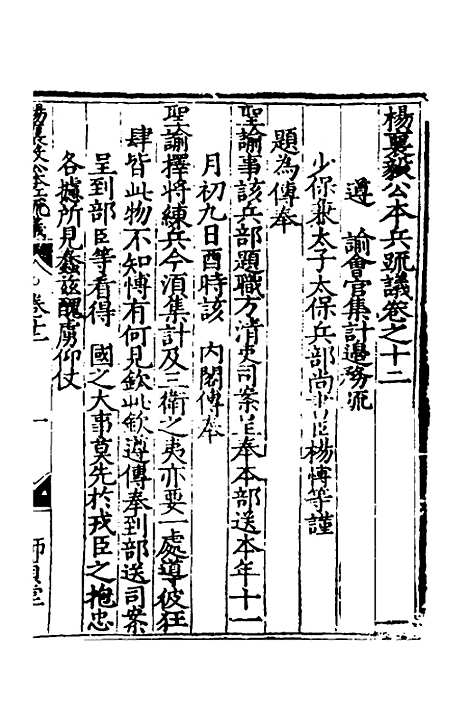 楊襄毅公本兵疏議卷之十二
遵　諭會官集計邊務疏
少保兼太子太保兵部尚書臣楊博等謹
題為傳奉
聖諭事該兵部題職方清吏司案呈奉本部送本年十一
月初九日酉時該　內閣傳奉
聖諭擇將練兵今湏集計及三衛之夷亦要一處導彼狂
肆皆此物不知博有何見欽此欽遵傳奉到部送司案
呈到部臣等看得　國之大事莫先於戎臣之抱忠
各攄所見蠢茲醜虜仰仗
楊襄毅公本兵疏議　卷十二　一　師貞堂